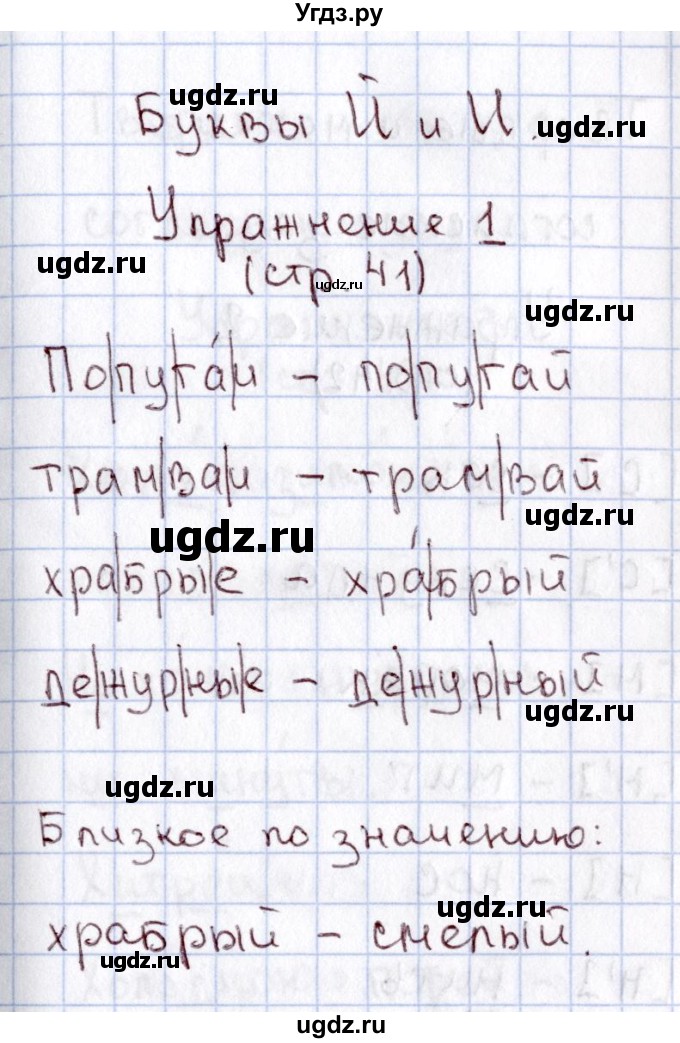 Угдз.ру
ugdz.ru
Буквы Й и И.
ugdz.ru
Упражнение 1
ugdz.ru
(стр. 41)
ugdz.ru
ugdz.ru
По|пу|га́|и – по|пу|гай
трам|ва|и – трам|вай
ugdz.ru
ugdz.ru
хра|бры|е – хра́|брый
де|жур|ны|е – де|жур|ный
ugdz.ru
ugdz.ru
Близкое по значению:
ugdz.ru
храбрый – смелый.
ugdz.ru
ugdz.ru